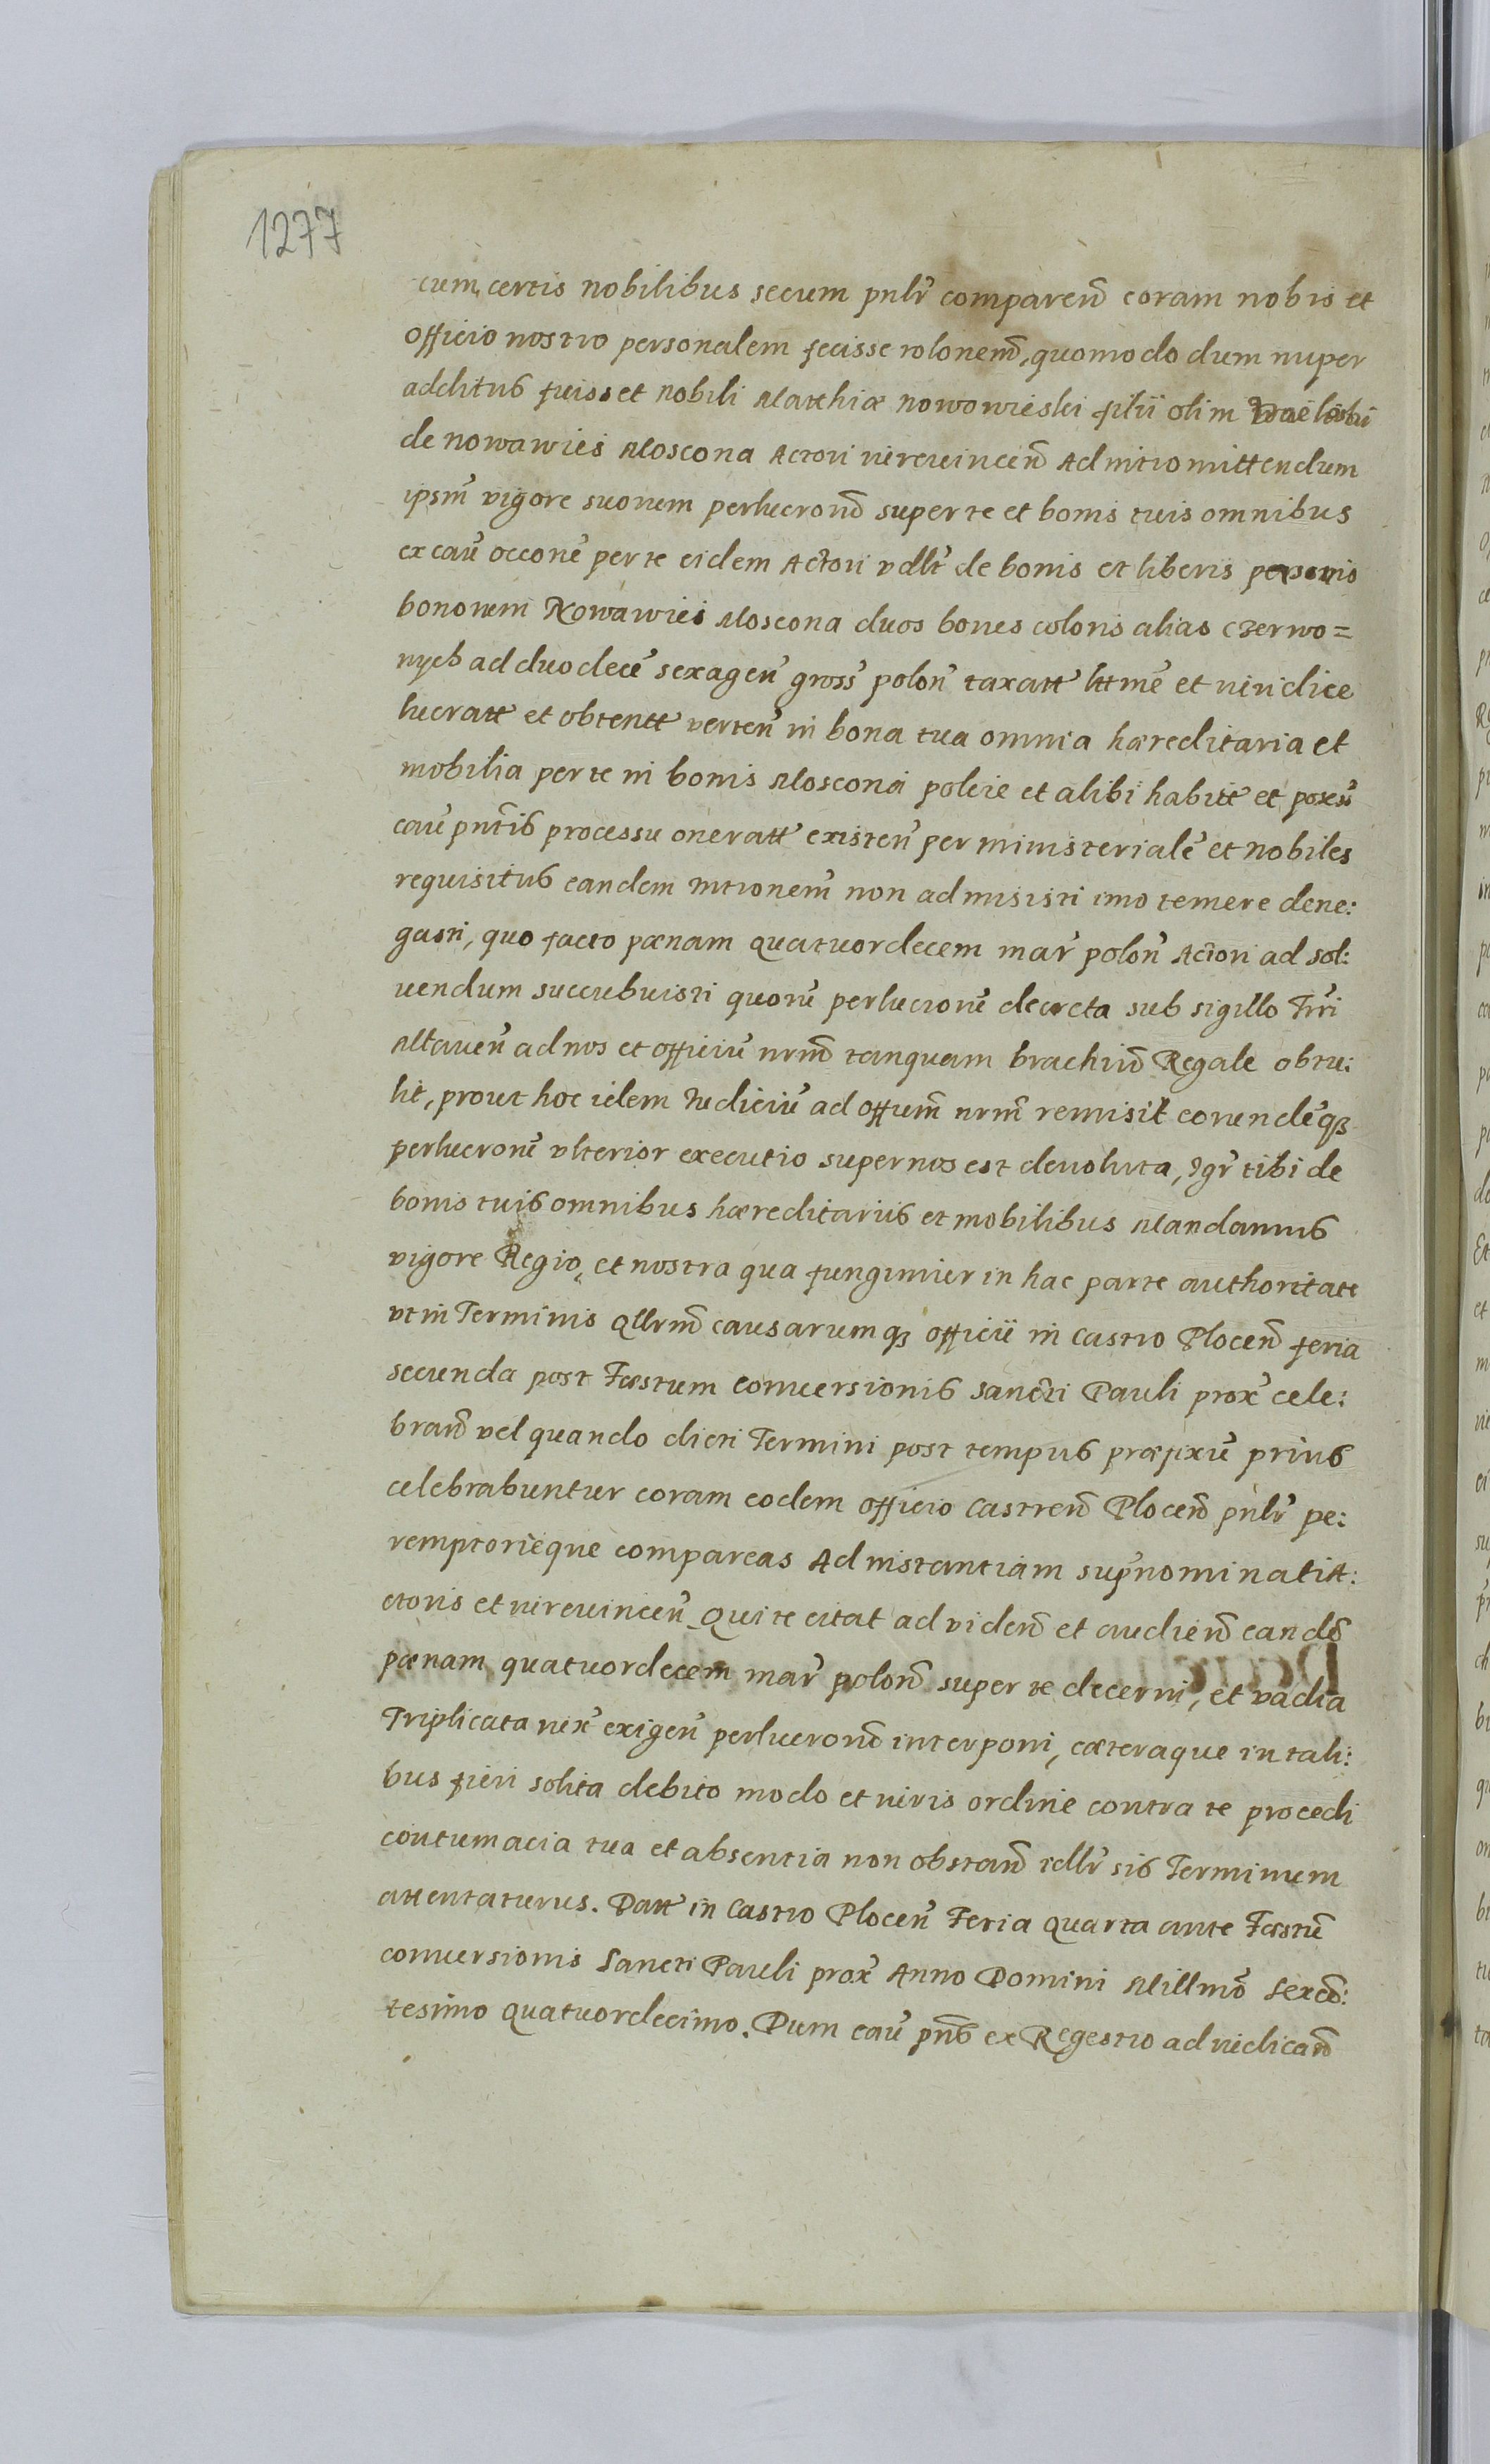 1277
cum certis nobilibus secum pnlr̃ comparen̄ coram nobis et
Officio nostro personalem fecisse rolonem̄, quomodo dum nuper
additus fuisset nobili Matthiæ Nowowieski filii olim
de Nowawies Moscona Actori iurevincen̄ Ad intromittendum
ipsm̄ vigore suorum perlucronū super te et bonis tuis omnibus
ex caū occone per te eidem Actori vdlt̄ de bonis et liberis personis
bonorum Nowawies Moscona duos boues coloris alias czerwo=
nych ad duodecē sexagen̄ gross̄ polon̄ taxatt lttmē et iuridice
lucratt et obtentt verten̄ in bona tua omnia hæreditaria et
mobilia per te in bonis Moscona polcie et alibi habitt et posess̄
caū pn̄tis processu oneratt existen̄ per ministerialē et nobiles
requisitus eandem intronem̄ non admisisti imo temere dene:
gasti, quo facto pœnam quatuordecem mar̄ polon̄ Actori ad sol:
uendum succubuisti quorū perlucronū decreta sub sigillo Trri
Mlaven̄ ad nos et officiū nrm̄ tanquam brachiū Regale obtu:
lit, prout hoc idem Iudiciū ad offum̄ nrm̄ remisit eorundēq3
perlucronū vlterior executio super nos est deuoluta, Igr̄ tibi de
bonis tuis omnibus hæreditariis et mobilibus Mandamus
vigore Regio, et nostra qua fungimur in hac parte authoritate
vt in Terminis qllrm̄ causarumq3 officii in Castro Plocen̄ feria
secunda post Fæstum Conuersionis Sancti Pauli prox̄ cele:
bran̄ vel quando dicti Termini post tempus præfixū prius
celebrabuntur coram eodem officio Castren̄ Plocen̄ pnlr̄ pe:
remptorieque compareas Ad instantiam sup̄nominati A:
ctoris et iurevincen̄ Qui te citat ad viden̄ et audien̄ eandē
pœnam quatuordecem mar̄ polon̄ super te decerni, et vadia
Triplicata iux̄ exigen̄ perlucronū interponi, cæteraque in tali:
bus fieri solita debito modo et iuris ordine contra te procedi
contumacia tua et absentia non obstan̄ idlr̄ sis Terminum
attentaturus. Datt in Castro Plocen̄ Feria quarta ante Fæstū
conuersionis Sancti Pauli prox̄ Anno Domini Millmō Sexcē:
tesimo quatuordecimo. Dum caū pn̄s ex Regestro ad iudican̄